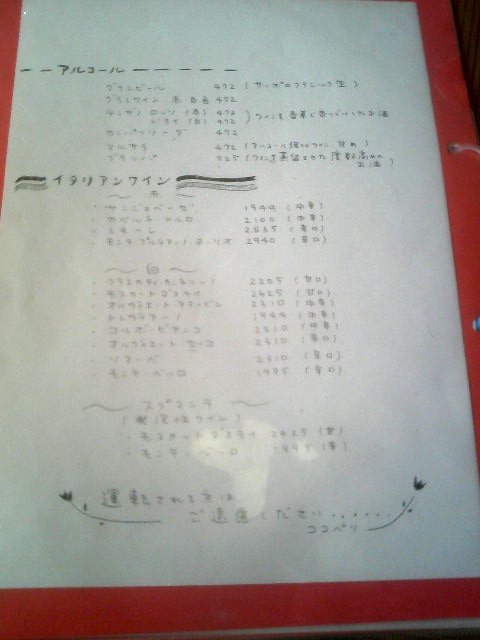 アルコール
グラスビール 472 (サッポロクラシック 生)
グラスワイン 赤 白 各 452
チンザノ ロッソ (赤) 472
ドライ (白) 472 ワインを香草で香りづけしたお酒
カンパリソーダ 472
マルサラ 472 (アルコール強化ワイン 甘め)
グラッパ 525 (ワインを蒸留させた度数高めの
お酒)
イタリアンワイン
赤
・サンジョベーゼ 1944 (中辛)
・カベルネ メルロ 2100 (中辛)
・レモーレ 2835 (辛口)
・モンテプルチアーノ 2940 (辛口)
白
・フラスカティ カンネリーノ 2205 (甘口)
・モスカートダスティ 2625 (甘口)
・オルヴィエート アマービレ 2310 (中辛)
・トレヴィアーノ 1944 (中辛)
・コルボ・ビアンコ 2310 (中辛)
・オルヴィエート セッコ 2310 (辛口)
・ソアーベ 2310 (辛口)
・モンテベッロ 1995 (辛口)
スプマンテ
(発泡性ワイン)
・モスカートダスティ 2625 (甘)
・モンテベッロ 1995 (辛)
運転される方は
ご遠慮ください......
ココペリ